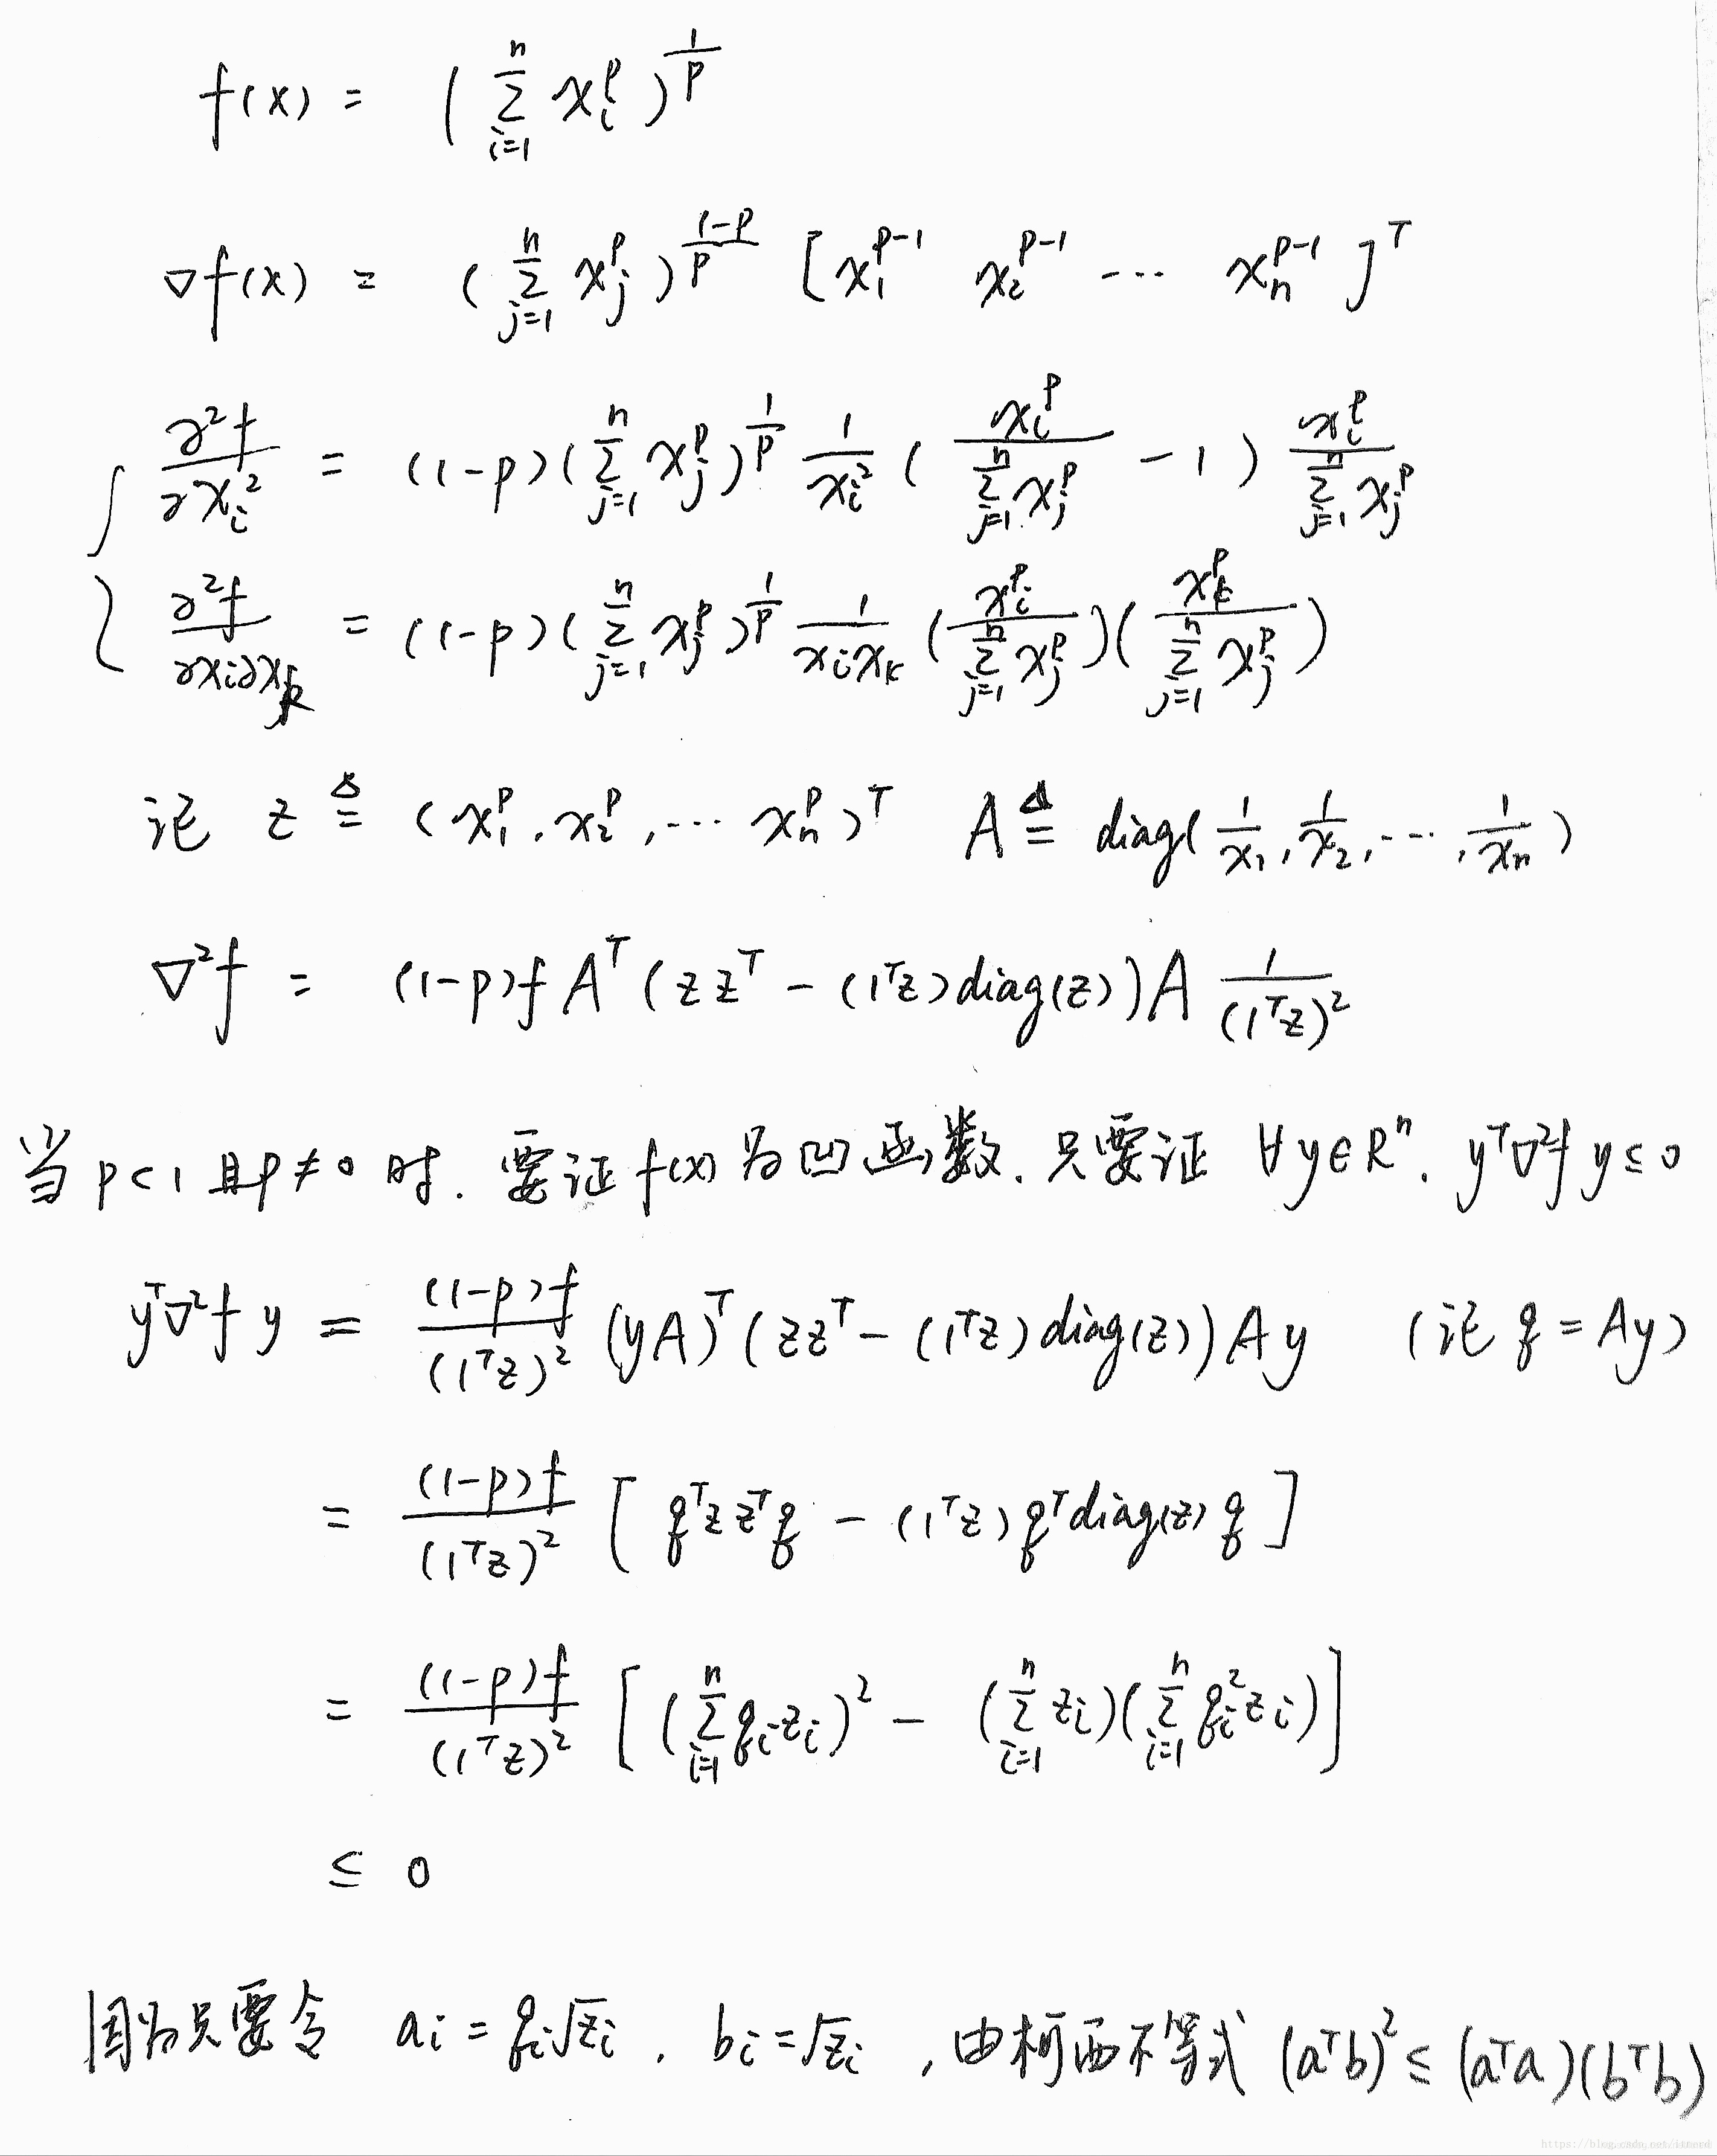 f(x) = (∑_{i=1}^{n} x_i^p)^{1/p}
∇f(x) = (∑_{j=1}^{n} x_j^p)^{(1-p)/p} [x_1^{p-1} x_2^{p-1} ⋯ x_n^{p-1}]^T
∂²f/∂x_i² = (1-p)(∑_{j=1}^{n} x_j^p)^{1/p} 1/x_i² (x_i^p/∑_{j=1}^{n} x_j^p - 1) x_i^p/∑_{j=1}^{n} x_j^p
∂²f/∂x_i∂x_k = (1-p)(∑_{j=1}^{n} x_j^p)^{1/p} 1/(x_i x_k) (x_i^p/∑_{j=1}^{n} x_j^p)(x_k^p/∑_{j=1}^{n} x_j^p)
记 z ≜ (x_1^p, x_2^p, ⋯ x_n^p)^T A ≜ diag(1/x_1, 1/x_2, ⋯, 1/x_n)
∇²f = (1-p)f A^T (zz^T - (1^Tz)diag(z))A 1/(1^Tz)²
当 p<1 且 p≠0 时. 要证 f(x) 为凹函数. 只要证 ∀y∈R^n. y^T∇²f y ≤ 0
y^T∇²f y = (1-p)f/(1^Tz)² (yA)^T (zz^T - (1^Tz)diag(z))Ay (记 q = Ay)
= (1-p)f/(1^Tz)² [q^Tzz^Tq - (1^Tz)q^Tdiag(z)q]
= (1-p)f/(1^Tz)² [(∑_{i=1}^{n} q_i z_i)² - (∑_{i=1}^{n} z_i)(∑_{i=1}^{n} q_i² z_i)]
≤ 0
因为只要令 a_i = q_i√z_i . b_i = √z_i , 由柯西不等式 (a^Tb)² ≤ (a^Ta)(b^Tb)